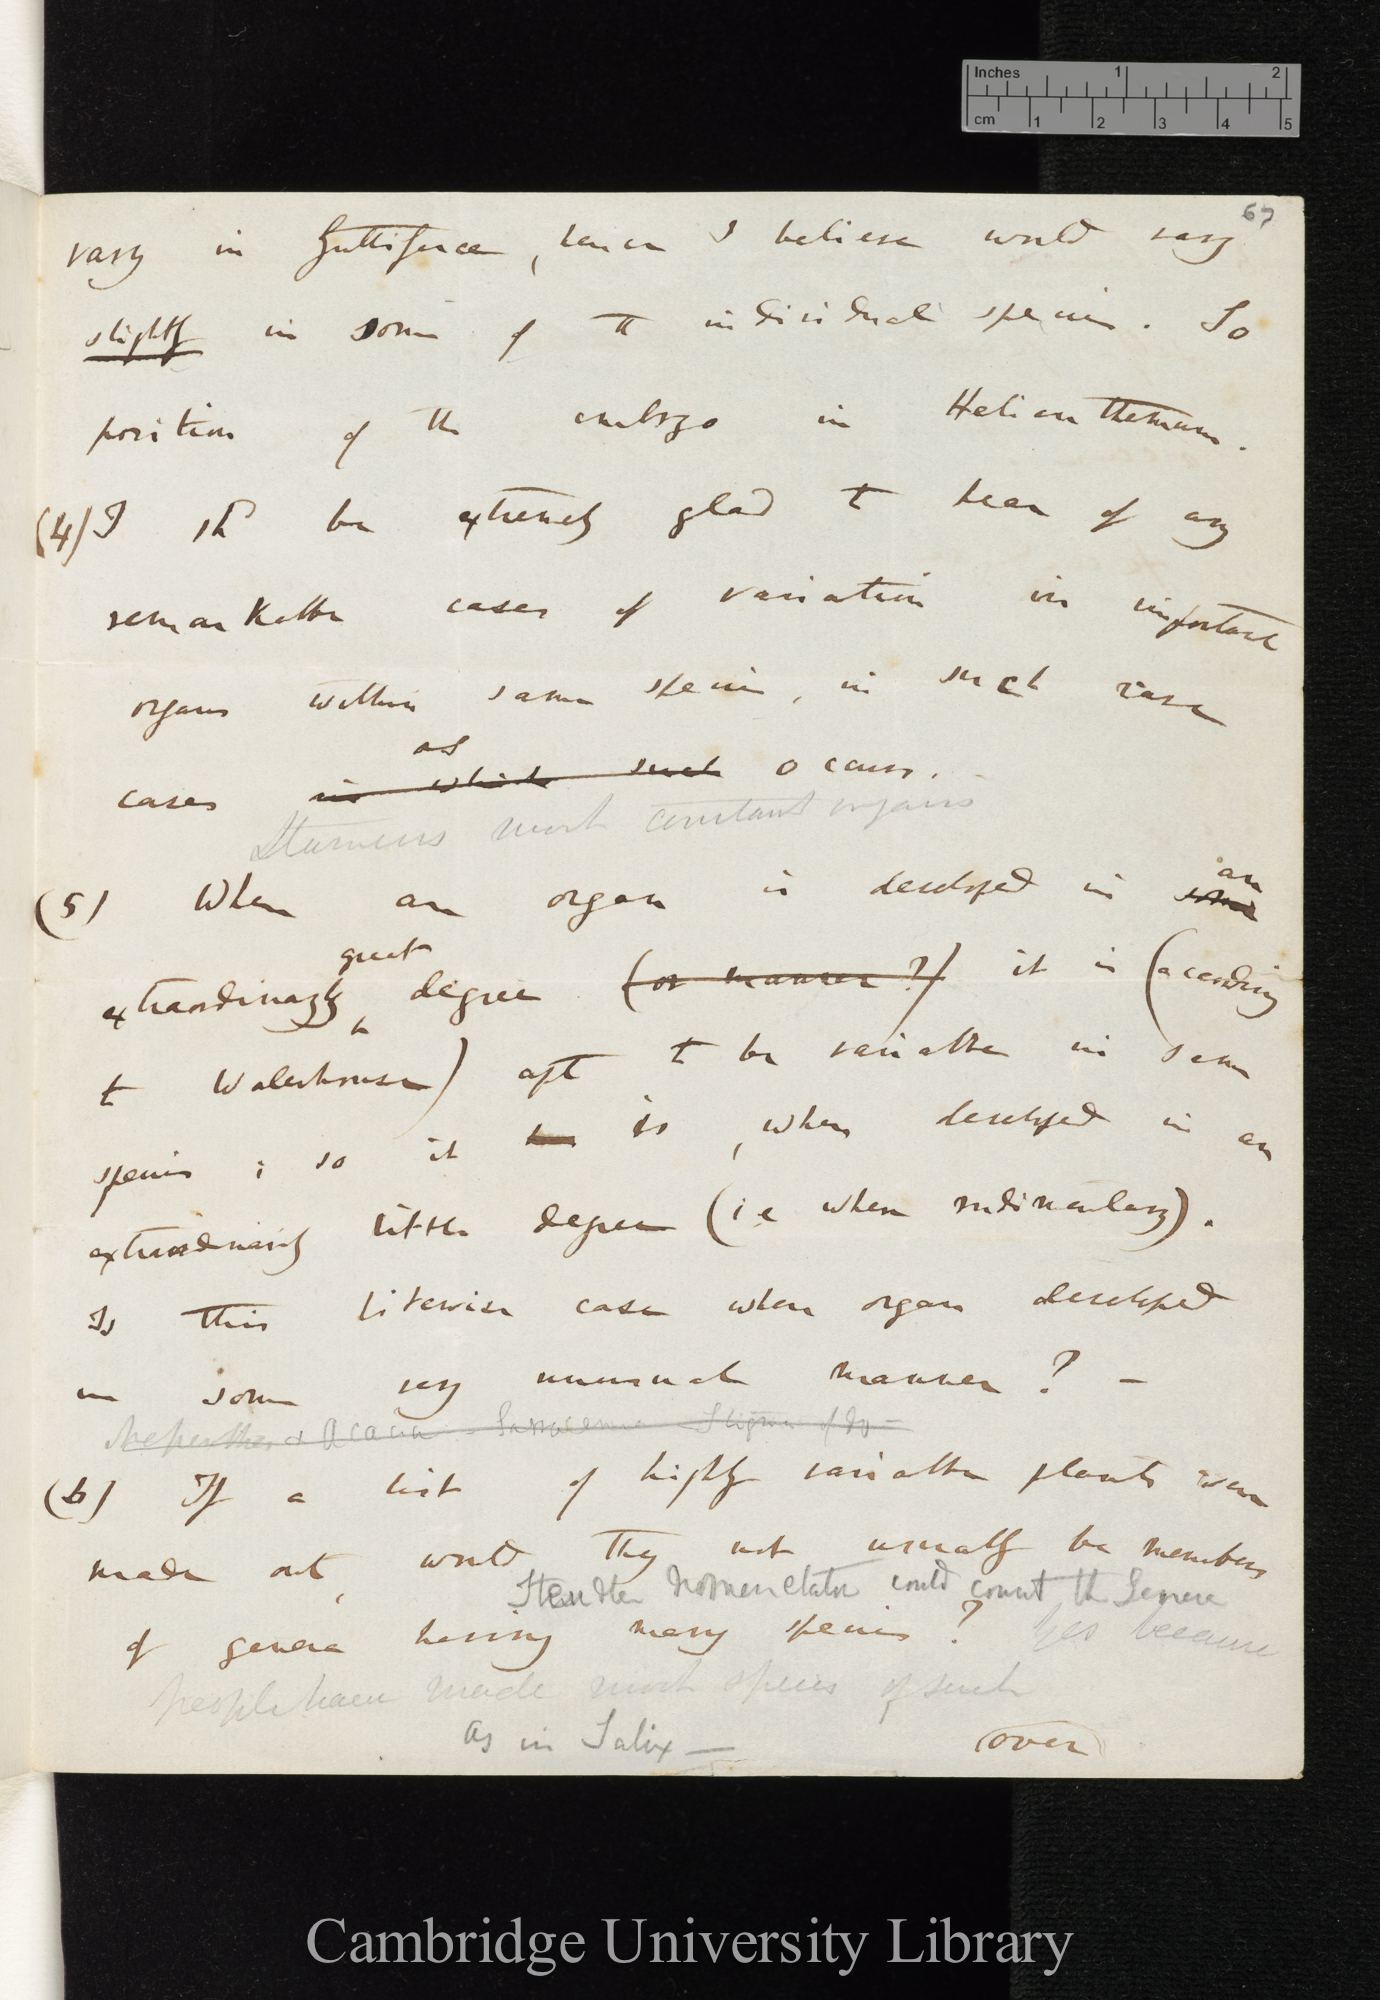 Inches 1 2
cm 1 2 3 4 5
67
vary in Guttiferæ, hence I believe would vary
slightly in some of the individual species. So
position of the embryo in Helianthemum.
(4) I shd be extremely glad to hear of any
remarkable cases of variation in important
organs within same species, in such rare
as
cases in which such occurs.
Stamens most constant organs
(5) When an organ is developed in some
an
great
extraordinaryly degree (or manner?) it is (according
to Waterhouse) apt to be variable in same
species; so it is, when developed in an
extraordinarily little degree (i.e when rudimentary).
Is this likewise case when organ developed
in some very unusual manner? —
Nepenthes & Acacia – Sarracenia Stigma of Do —
(6) If a list of highly variable plants were
made out, would they not usually be members
Steudter Nomenclator could count the Genera
of genera having many species? Yes because
people have made most species of such
as in Salix —
(over)
Cambridge University Library